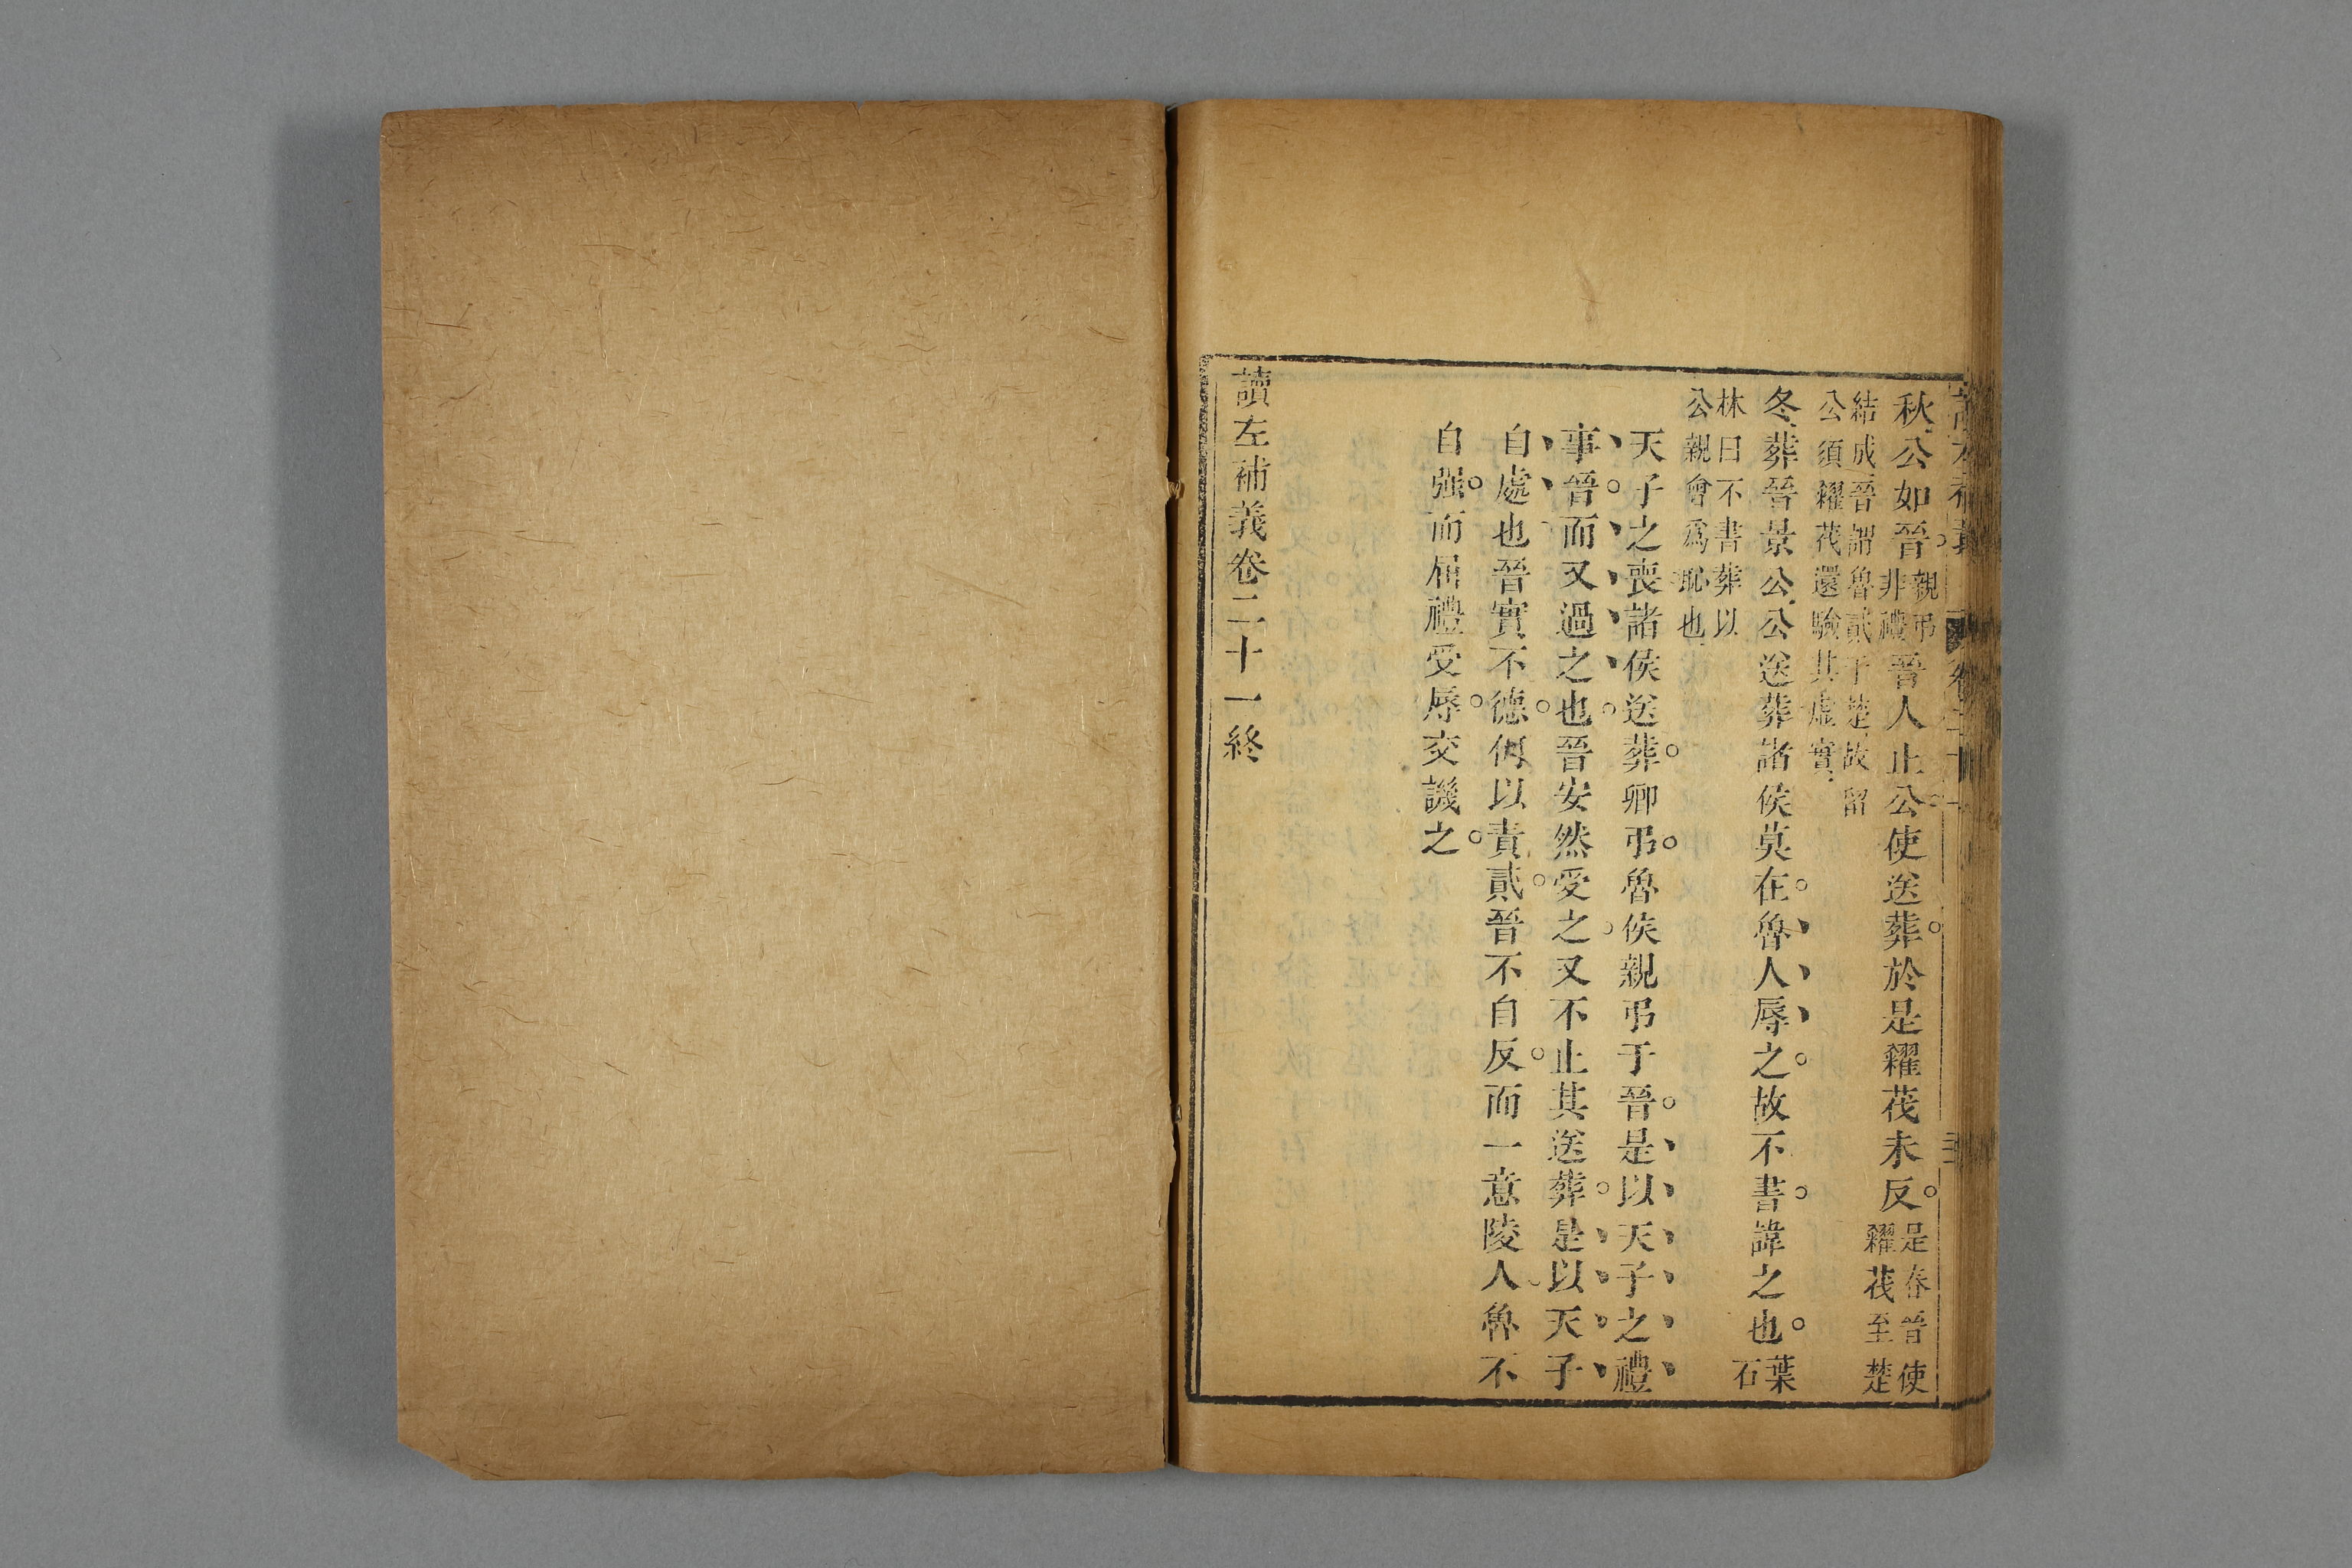 讀左補義 卷二十一
秋公如晉親弔非禮晉人止公使送葬於是糴茷未反是春晉使糴茷至楚
結成晉謂魯貳于楚故留
公須糴茷還驗其虛實
冬葬晉景公公送葬諸侯莫在魯人辱之故不書諱之也葉石
林曰不書葬以
公親會爲恥也
天子之喪諸侯送葬卿弔魯侯親弔于晉是以天子之禮
事晉而又過之也晉安然受之又不止其送葬是以天子
自處也晉實不德何以責貳晉不自反而一意陵人魯不
自强而屈禮受辱交譏之
讀左補義卷二十一終